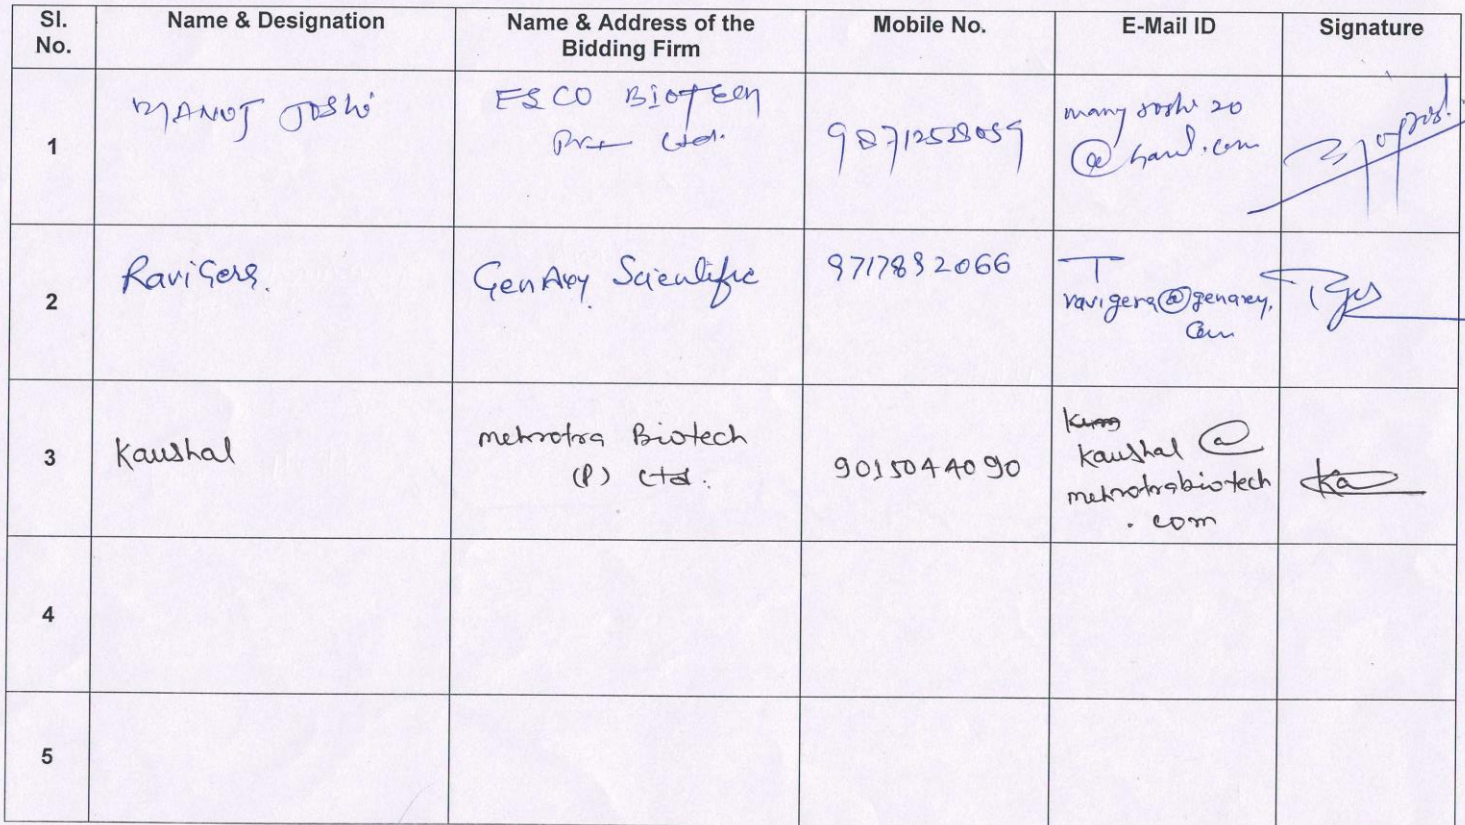 Sl. No.
Name & Designation
Name & Address of the Bidding Firm
Mobile No.
E-Mail ID
Signature
1
MANOJ JOSHI
ESCO BIOTECH
Pvt Ltd.
2
Ravi Gera.
GenAxy Scientific
9717892066
ravigera@genaxy.
com
3
Kaushal
mehrotra Biotech
(P) Ltd.
9015044090
kaushal @
mehrotrabiotech
. com
4
5